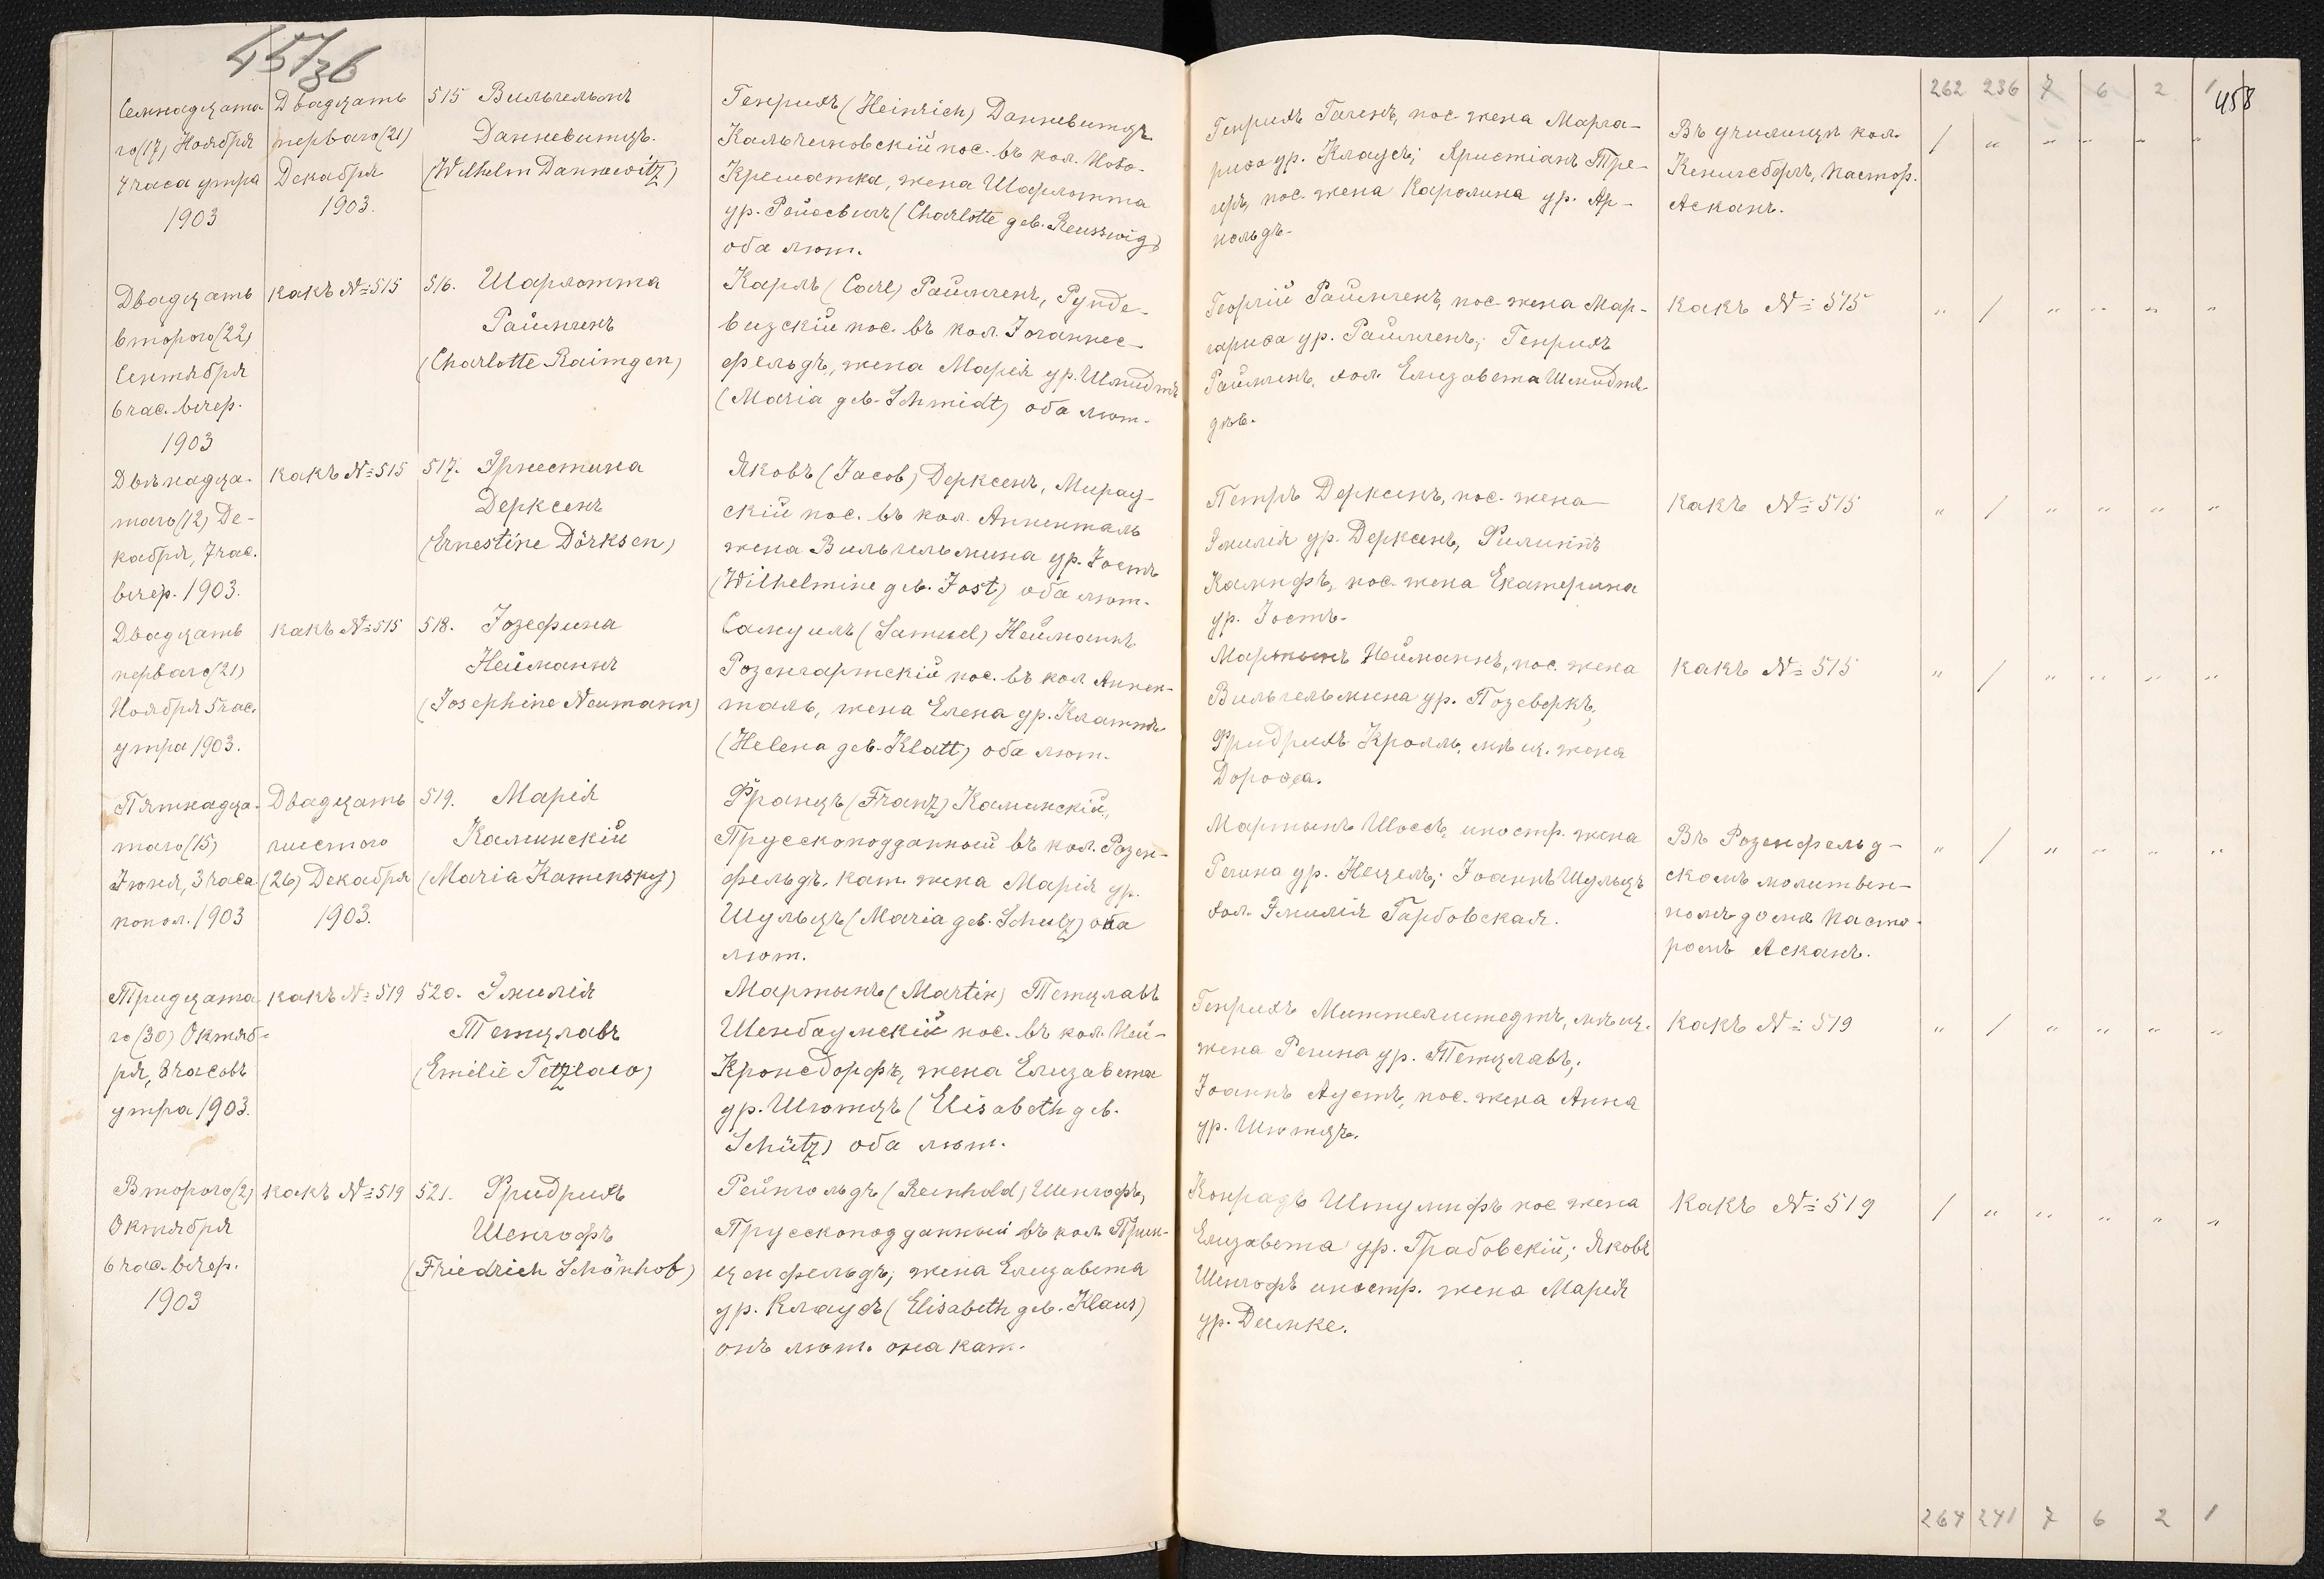 457зб
262 236 7 6 2 1
458
Семнадцата
го (17) Ноября
4 часа утра
1903
Двадцать
перваго (21)
Декабря
1903.
515 Вильгельмъ
Данневитцъ.
(Wilhelm Dannewitz)
Генрихъ (Heinrich) Данневитцъ
Кальчиновскій пос. въ кол. Ново-
Кременчка, жена Шарлотта
ур. Рейсвигъ (Charlotte geb. Reusswig)
оба лют.
Генрихъ Гагенъ, пос. жена Марга-
риѳа ур. Клаусъ; Христіанъ Тре-
геръ, пос. жена Каролина ур. Ар-
нольдъ.
Въ училищѣ кол.
Кенигсбергъ, пастор.
Асканъ.
/ " " " " "
Двадцать
второго (22)
Сентября
6 час. вечер.
1903
какъ № 515
516. Шарлотта
Раймгенъ
(Charlotte Raimgen)
Карлъ (Carl) Раймгенъ, Рунде-
визскій пос. въ кол. Іоганнес-
фельдъ, жена Марія ур. Шмидтъ
(Maria geb. Schmidt) оба лют.
Георгій Раймгенъ, пос. жена Мар-
гариѳа ур. Раймгенъ; Генрихъ
Раймгенъ, хол. Елизавета Шмидтъ
дѣв.
какъ № 515
" / " " " "
Двѣнадца-
таго (12) Де-
кабря, 7 час.
вечер. 1903.
какъ № 515
517. Эрнестина
Дерксенъ
(Ernestine Dörksen)
Яковъ (Jacob) Дерксенъ, Мирау-
скій пос. въ кол. Анненталь
жена Вильгельмина ур. Іостъ
(Wilhelmine geb. Jost) оба лют.
Петръ Дерксенъ, пос. жена
Эмилія ур. Дерксенъ, Филиппъ
Кампфъ, пос. жена Екатерина
ур. Іостъ.
какъ № 515
" / " " " "
Двадцать
перваго (21)
Ноября 5 час.
утра 1903.
какъ № 515
518. Іозефина
Нейманнъ
(Josephine Neumann)
Самуилъ (Samuel) Нейманнъ
Розенгартскій пос. въ кол. Аннен-
таль, жена Елена ур. Клаттъ
(Helena geb. Klatt) оба лют.
Мартынъ Нейманнъ, пос. жена
Вильгельмина ур. Позеверкъ;
Фридрихъ Кролль, мѣщ. жена
Дороѳеа.
какъ № 515
" / " " " "
Пятнадца-
таго (15)
Іюня, 3 часа
попол. 1903
Двадцать
шестого
(26) Декабря
1903.
519. Марія
Каминскій
(Maria Kamensky)
Францъ (Franz) Каминскій,
Прусскоподданный въ кол. Розен-
фельдъ, кат. жена Марія ур.
Шульцъ (Maria geb. Schulz) она
лют.
Мартынъ Шоссъ, иностр. жена
Регина ур. Нецель; Іоаннъ Шульцъ
хол. Эмилія Гарбовская.
Въ Розенфельд-
скомъ молитвен-
номъ домѣ пасто-
ромъ Асканъ.
" / " " " "
Тридцата
го (30) Октяб-
ря, 8 часовъ
утра 1903.
какъ № 519
520. Эмилія
Тетцлавъ
(Emilie Tetzlaw)
Мартынъ (Martin) Тетцлавъ
Шенбаумскій пос. въ кол. Ней-
Кронсдорфъ, жена Елизавета
ур. Шютцъ (Elisabeth geb.
Schütz) оба лют.
Генрихъ Миттельштедтъ, мѣщ.
жена Регина ур. Тетцлавъ;
Іоаннъ Аустъ, пос. жена Анна
ур. Шютцъ.
какъ № 519
" / " " " "
Второго (2)
Октября
6 час. вечер.
1903
какъ № 519
521. Фридрихъ
Шенгофъ
(Friedrich Schönhof)
Рейнгольдъ (Reinhold) Шенгофъ,
Прусскоподданный въ кол. Прин-
ценфельдъ; жена Елизавета
ур. Клаусъ (Elisabeth geb. Klaus)
онъ лют. она кат.
Конрадъ Штумпфъ пос. жена
Елизавета ур. Грабовскій; Яковъ
Шенгофъ иностр. жена Марія
ур. Демке.
какъ № 519
/ " " " " "
264 241 7 6 2 1